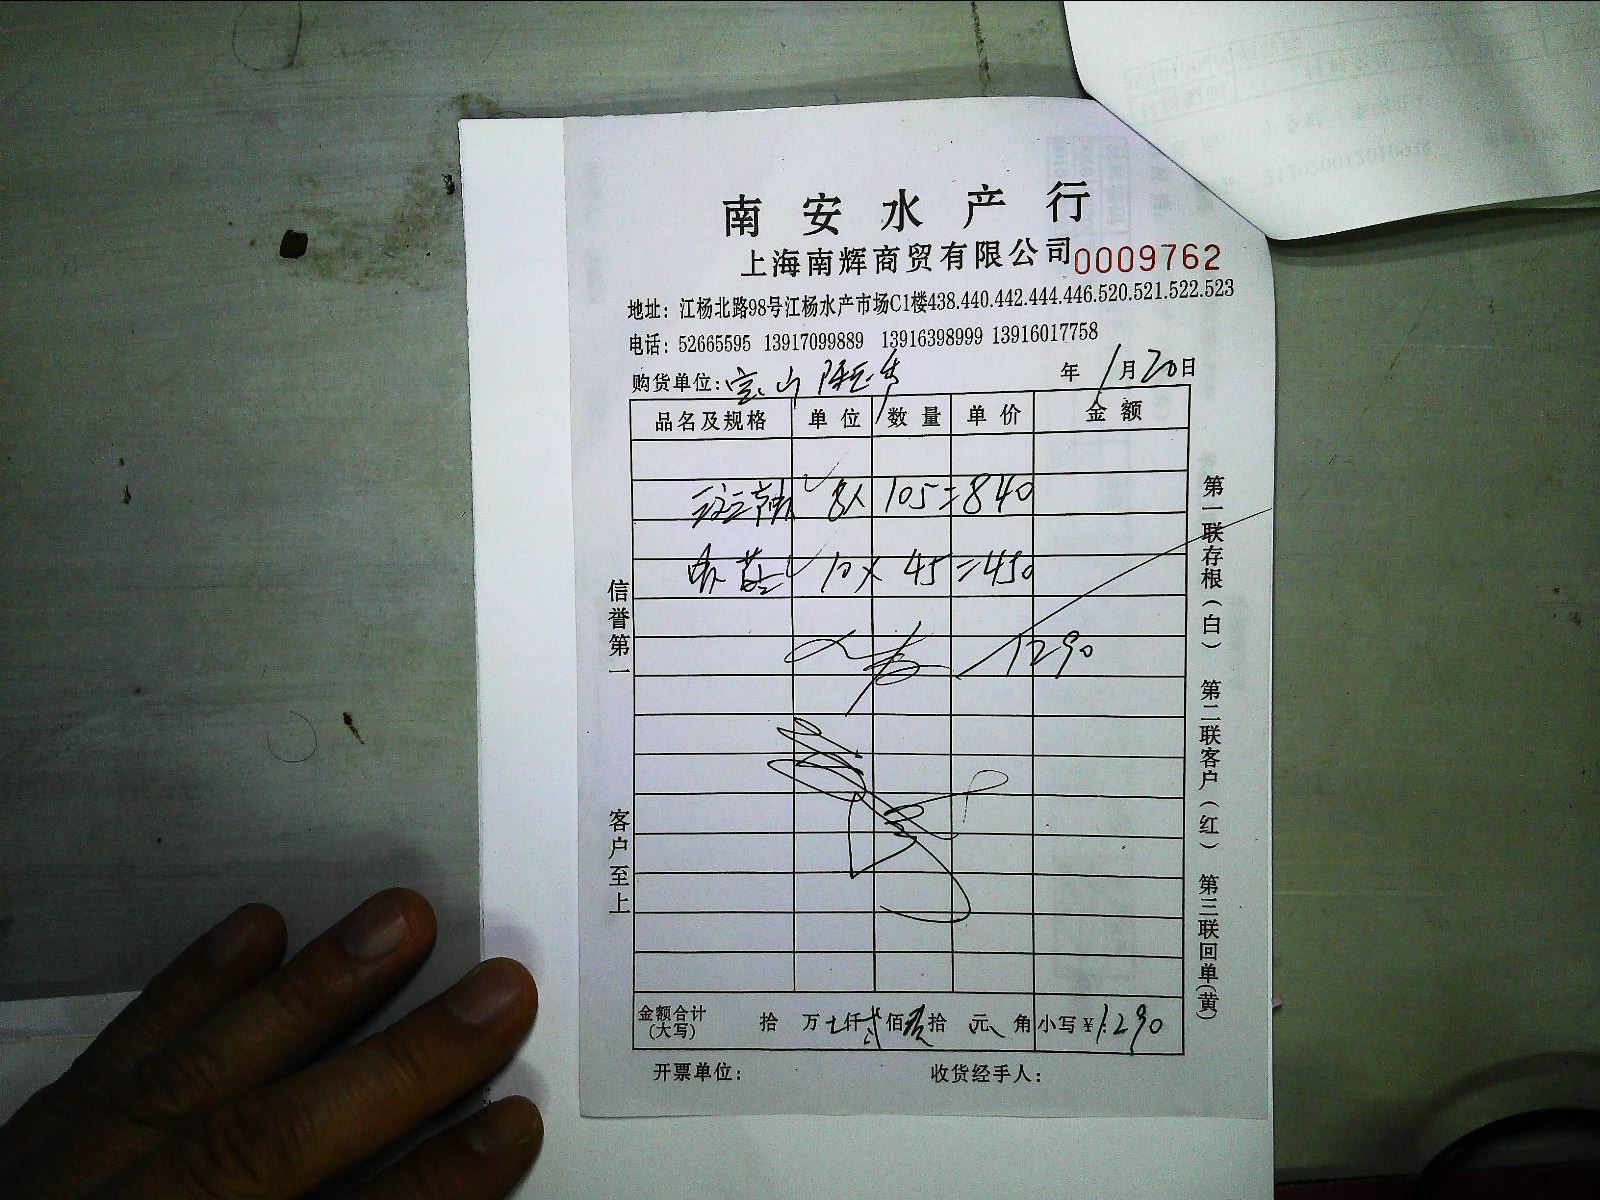 南安水产行
上海南辉商贸有限公司 0009762
地址：江杨北路98号江杨水产市场C1楼438.440.442.444.446.520.521.522.523
电话：52665595 13917099889 13916398999 13916017758
购货单位：宝山 年1月20日
品名及规格 单位 数量 单价 金额
8 105=840
10× 45=450
1290
金额合计(大写) 拾 万 仟贰佰玖拾 元 角 小写¥1290
开票单位： 收货经手人：
信誉第一 客户至上
第一联存根(白) 第二联客户(红) 第三联回单(黄)